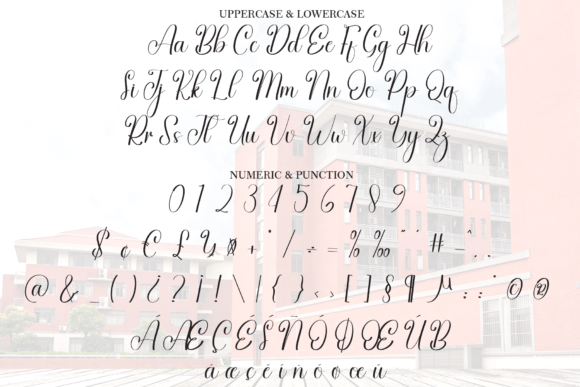 UPPERCASE & LOWERCASE
Aa Bb Cc Dd Ee Ff Gg Hh
Ii Jj Kk Ll Mm Nn Oo Pp Qq
Rr Ss Tt Uu Vv Ww Xx Yy Zz
NUMERIC & PUNCTION
0 1 2 3 4 5 6 7 8 9
$ ¢ € £ ¥ + * / ÷ = % ‰ " ' # – ^ , .
@ & _ ( ) ¿ ? ¡ ! \ | { } ‹ › [ ] § ¶ µ : ; © ®
Á Æ Ç É Í Ñ Ó Ø Œ Ú ß
á æ ç é í ñ ó ø œ ú